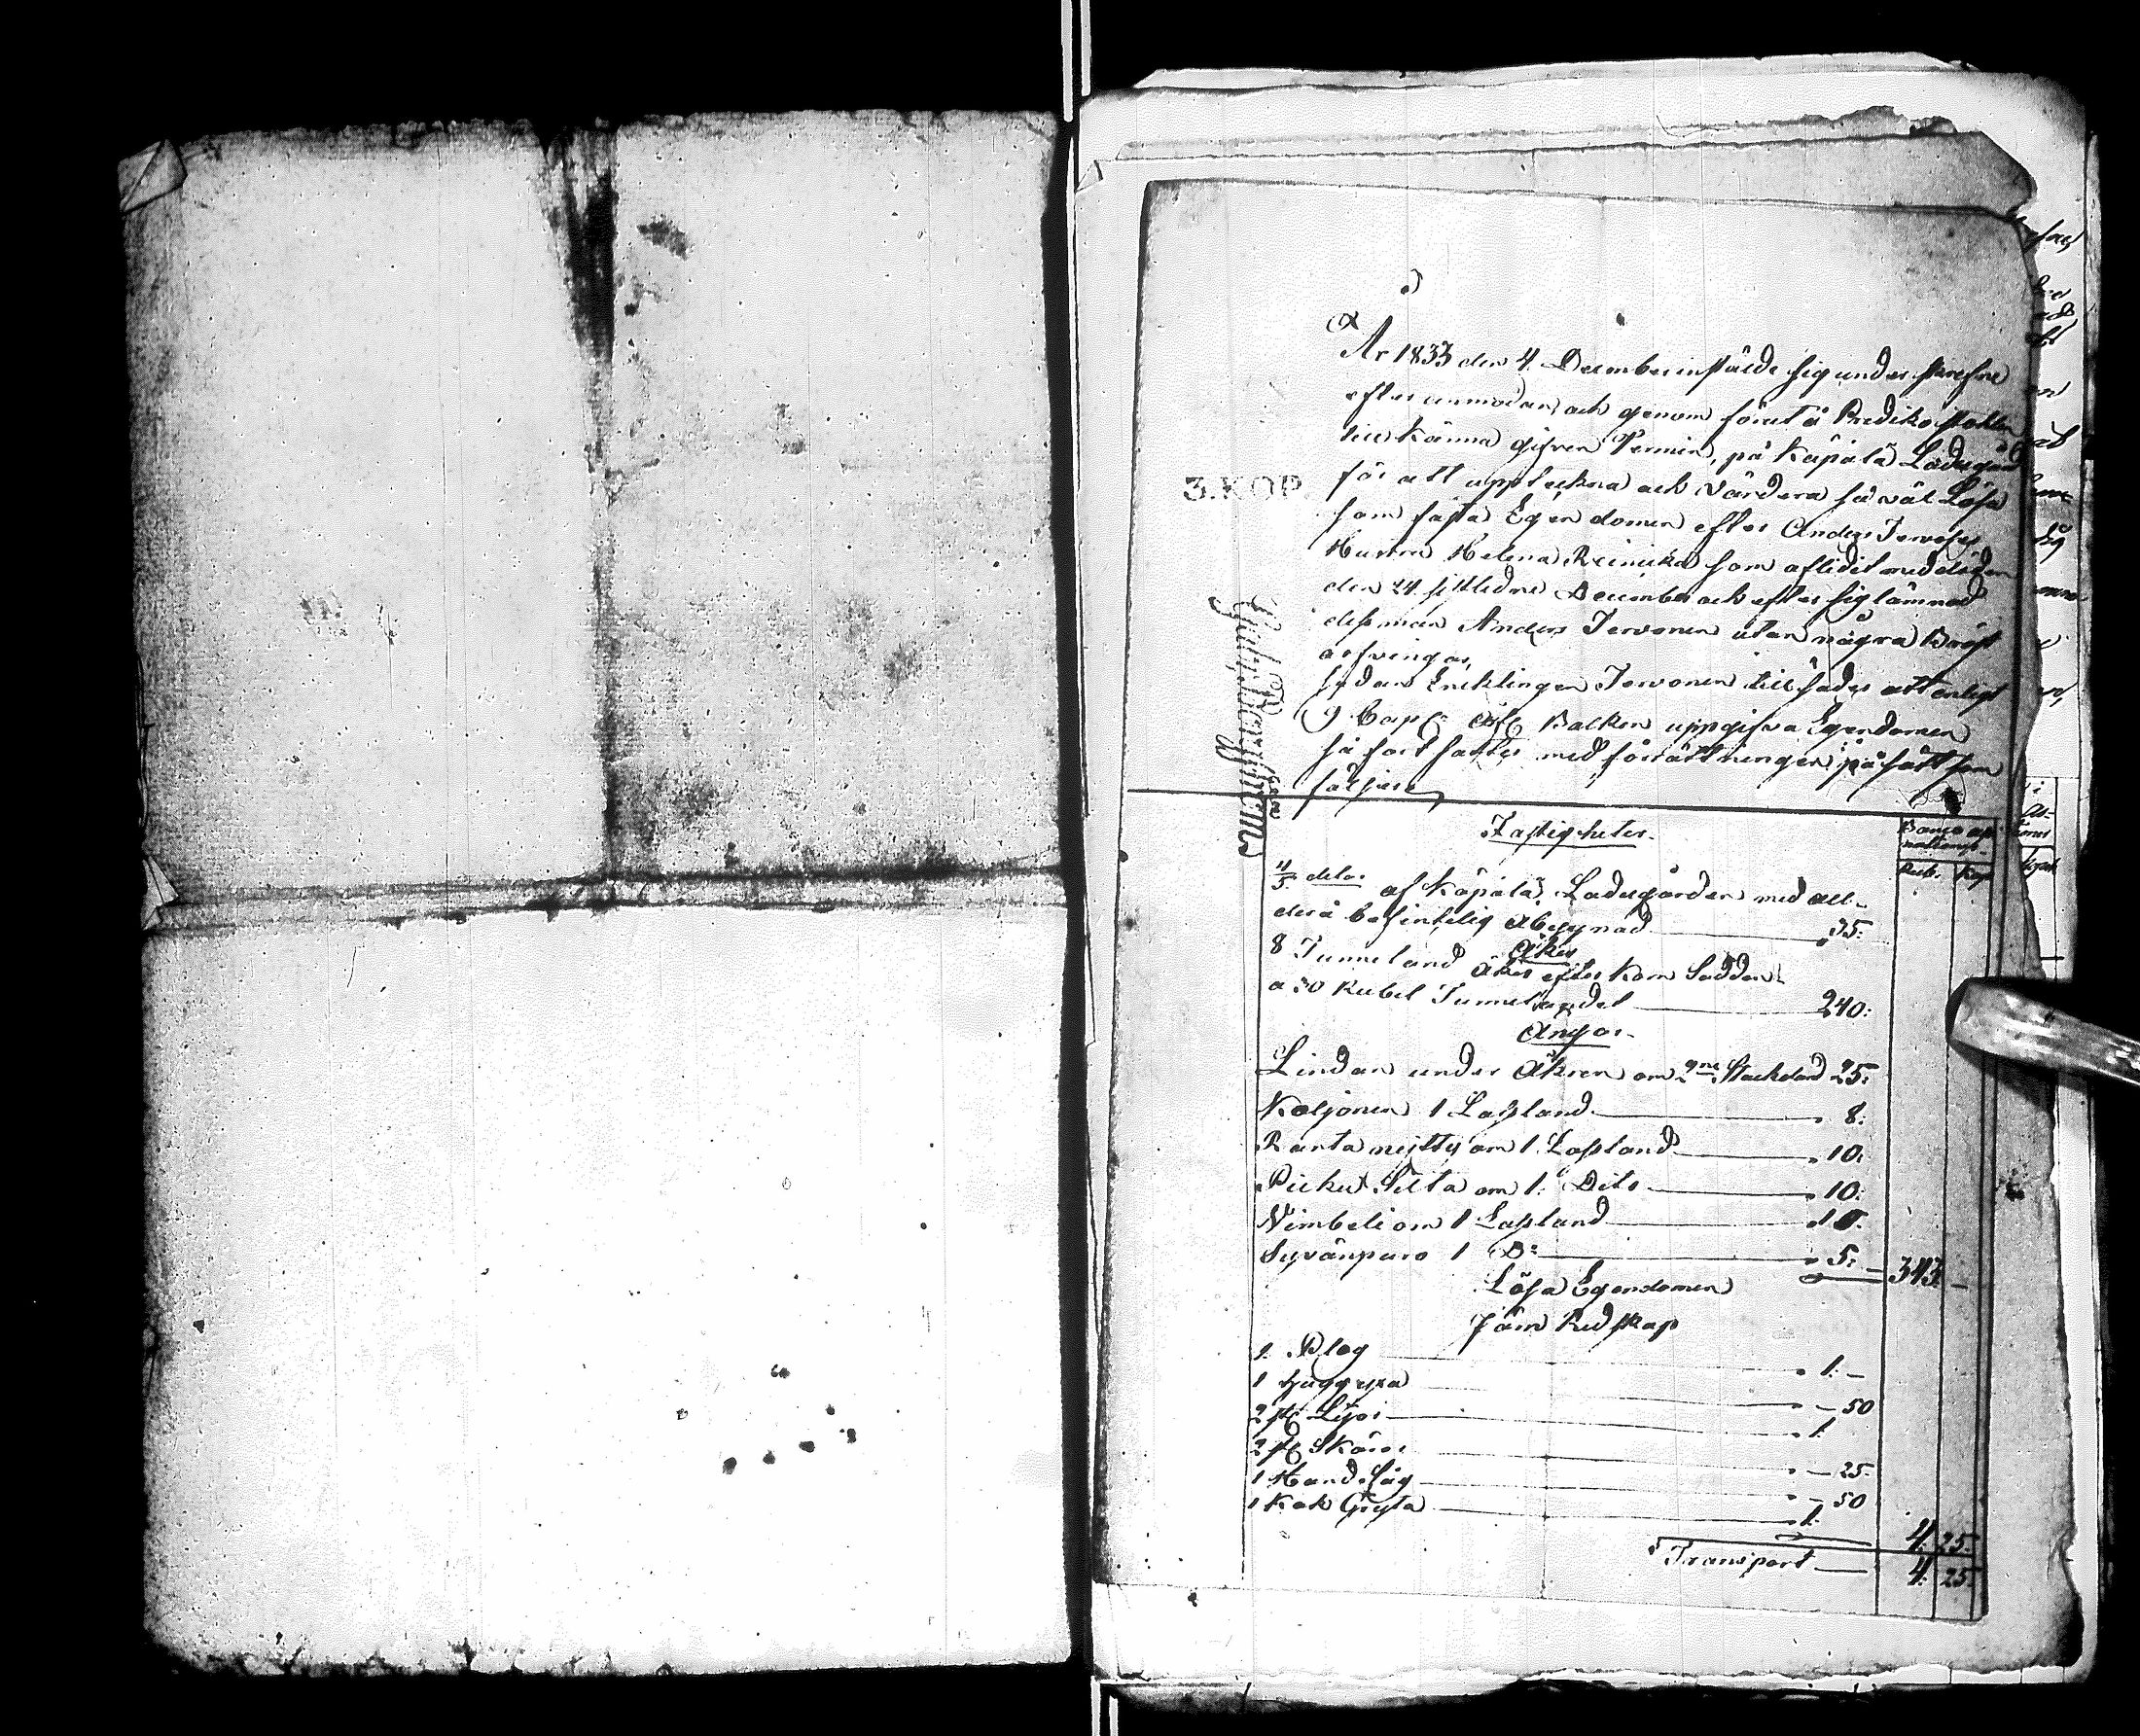 År 1833 den 4 December instälde sig undertecknad
efter anmodan och genom förut å Predikostolen
till känna gifven Termin, på Käpälä Ladugård
3.KOP.
för att uppteckna och värdera så väl Lösa
som fasta Egendomen efter Anders Tervoses
Hustru Helena Reinicka som aflidit med döden
den 24 sistledne December och efter sig lämnad
dess man Anders Tervonen utan några Bröst
arfvingar,
sedan Encklingen Tervonen till sades att enligt
9 Cap: Ärf: Balken uppgifva Egendomen
så fort sattes med förrättningen på sätt som
följer
Fastigheter.
Rub. Kop
4/5 delar af Käpälä Ladugården med all
derå befintelig Åbyggnad 35:
Åker
8 Tunneland Åker efter Korn Sädden
a 30 Rubel Tunnelandet 240:
Ängar.
Lindan under Åkren om 2ne Stackeland 25:
Koljonen 1 Lassland 8:
Ranta nijtty om 1 Lassland 10:
Picku Silta om 1: Dito 10:
Nimbeli om 1 Lassland 10.
Syvänpuro 1 D: 5: 343 —
Lösa Egendomen
Järn Redskap
1. Plog 1: —
1 Huggyxa — 50
2 st: Lijor 1
2 st: Skäror — 25.
1 Hand Såg — 50
1 Kok Gryta 1:
4. 25.
Transport 4. 25.